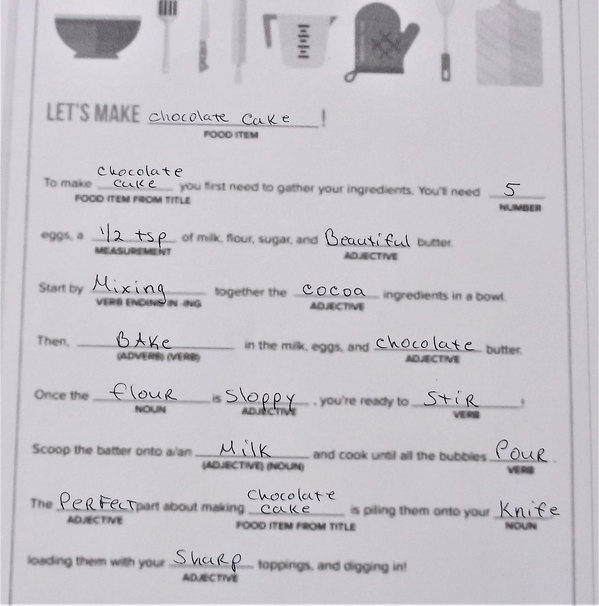 LET'S MAKE chocolate cake !
FOOD ITEM
chocolate
To make cake you first need to gather your ingredients. You'll need 5
FOOD ITEM FROM TITLE NUMBER
eggs, a 1/2 tsp of milk, flour, sugar, and Beautiful butter.
MEASUREMENT ADJECTIVE
Start by Mixing together the cocoa ingredients in a bowl.
VERB ENDING IN -ING ADJECTIVE
Then, BAKe in the milk, eggs, and chocolate butter.
(ADVERB) (VERB) ADJECTIVE
Once the flour is sloppy , you're ready to stir !
NOUN ADJECTIVE VERB
Scoop the batter onto a/an Milk and cook until all the bubbles Pour
(ADJECTIVE) (NOUN) VERB
Chocolate
The Perfect part about making cake is piling them onto your Knife
ADJECTIVE FOOD ITEM FROM TITLE NOUN
loading them with your Sharp toppings, and digging in!
ADJECTIVE